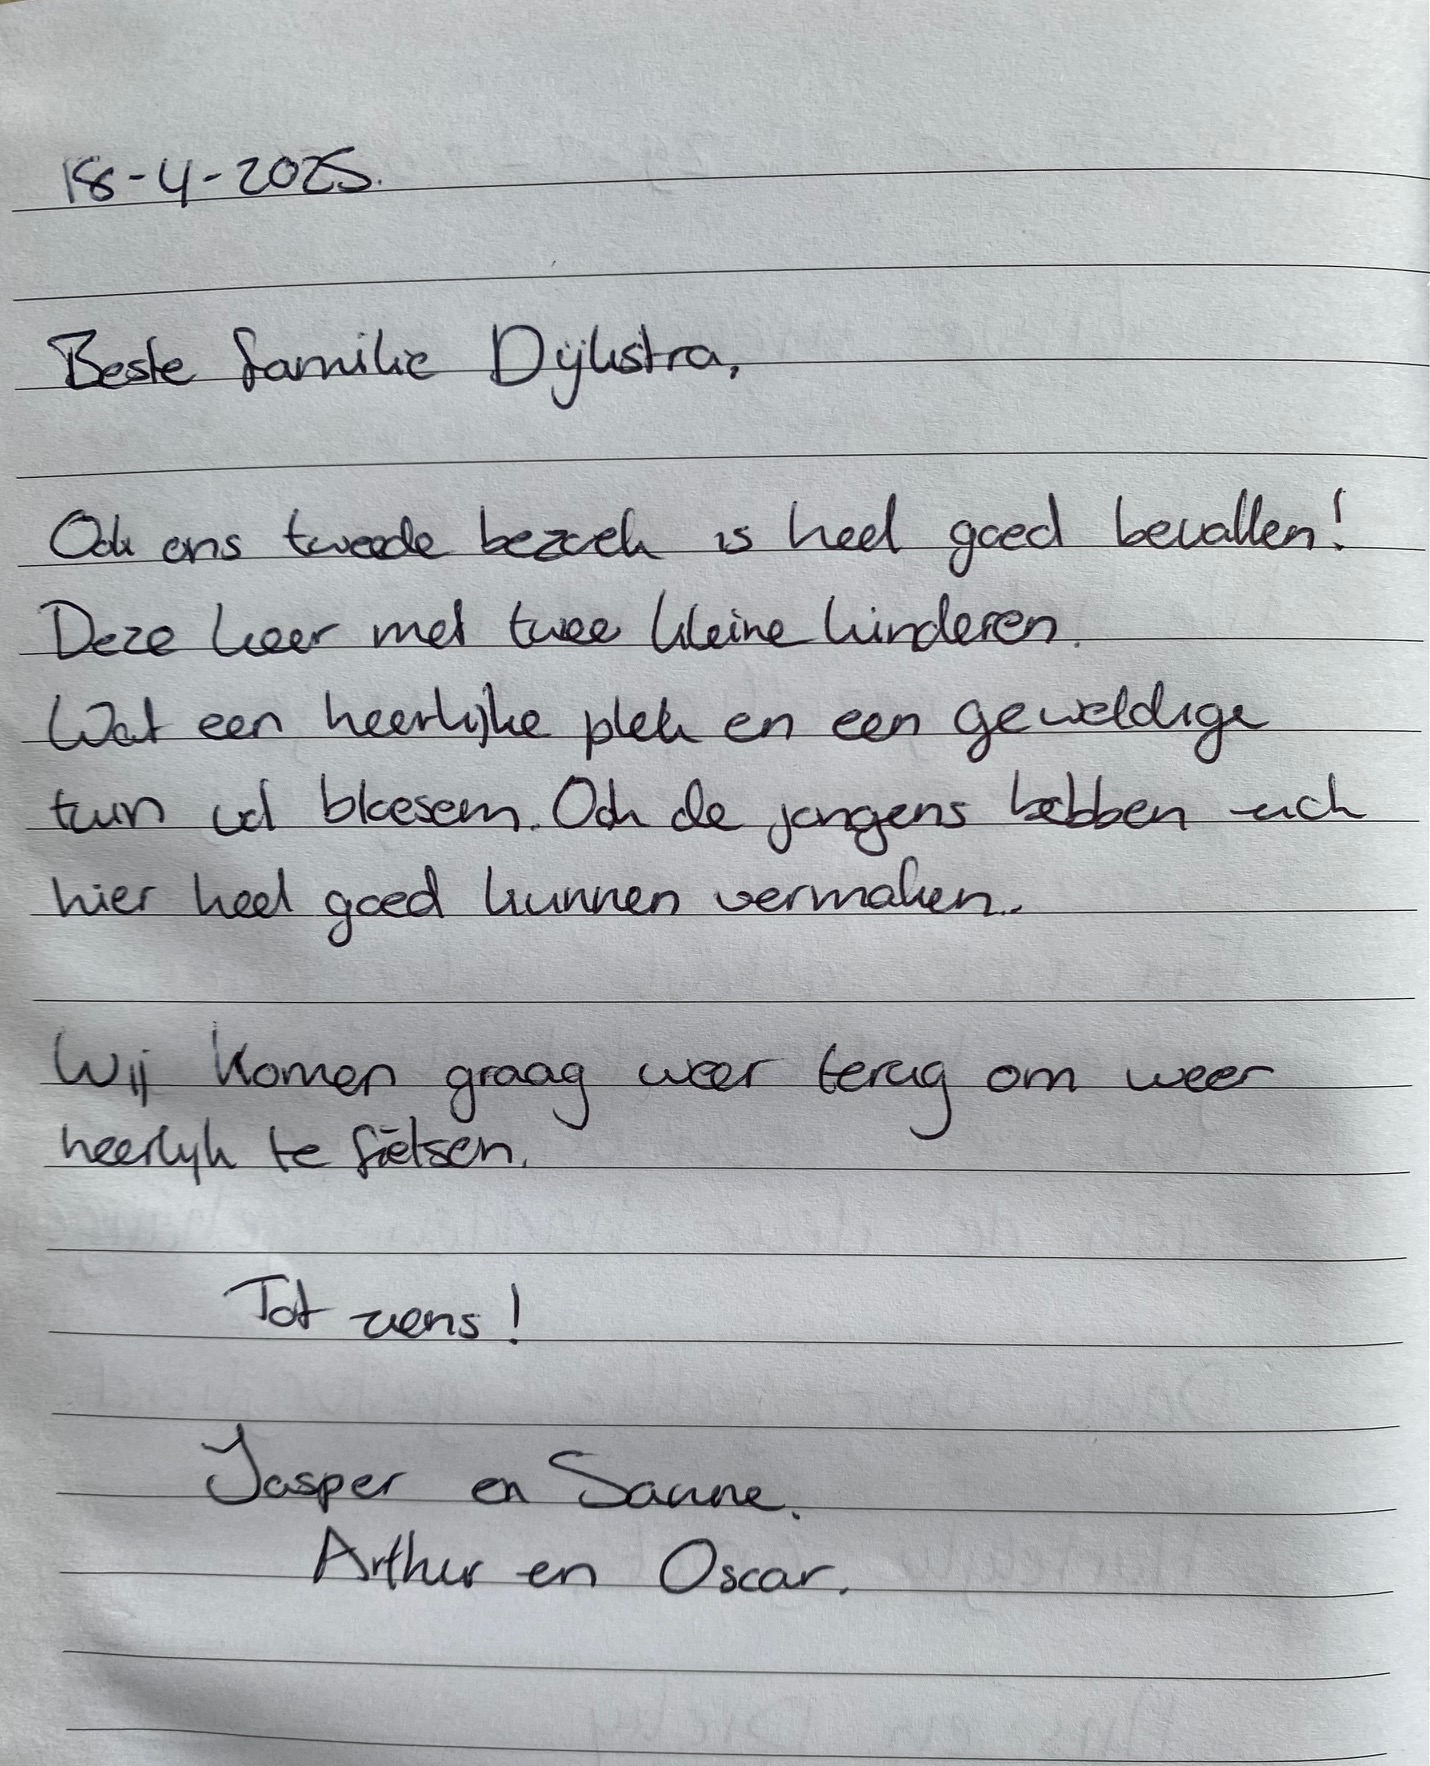 18-4-2025.
Beste familie Dijkstra,
Ook ons tweede bezoek is heel goed bevallen!
Deze keer met twee kleine kinderen.
Wat een heerlijke plek en een geweldige
tuin vol bloesem. Ook de jongens hebben zich
hier heel goed kunnen vermaken.
Wij komen graag weer terug om weer
heerlijk te fietsen.
Tot ziens!
Jasper en Sanne.
Arthur en Oscar.